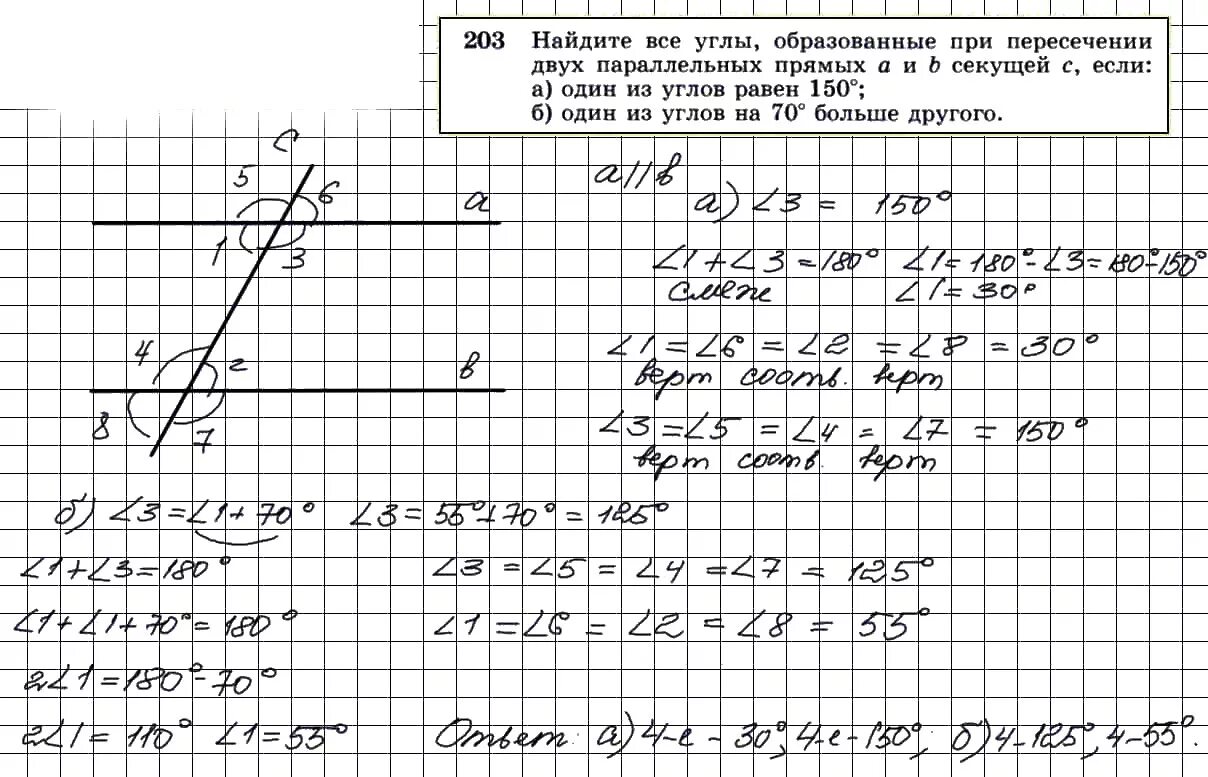 203 Найдите все углы, образованные при пересечении
двух параллельных прямых a и b секущей c, если:
а) один из углов равен 150°;
б) один из углов на 70° больше другого.
c
5
6
a
1
3
4
2
в
8
7
a//в
а) ∠3 = 150°
∠1+∠3=180° ∠1=180°-∠3=180°-150°
смеж ∠1=30°
∠1=∠6=∠2=∠8=30°
верт соотв. верт
∠3=∠5=∠4=∠7=150°
верт соотв. верт
б) ∠3=∠1+70° ∠3=55°+70°=125°
∠1+∠3=180° ∠3=∠5=∠4=∠7=125°
∠1+∠1+70°=180° ∠1=∠6=∠2=∠8=55°
2∠1=180°-70°
2∠1=110° ∠1=55° Ответ: а) 4-е-30°, 4-е-150°; б) 4-125°, 4-55°.